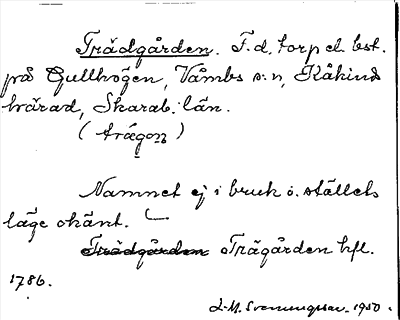 Trädgården. F.d. torp el. bst.
på Gullhögen, Våmbs s:n, Kåkinds
härad, Skarab. län.
(trägon)
Namnet ej i bruk o. ställets
läge okänt.
Trädgården Trägården hfl.
1786.
L-M. Svenungsson 1950.